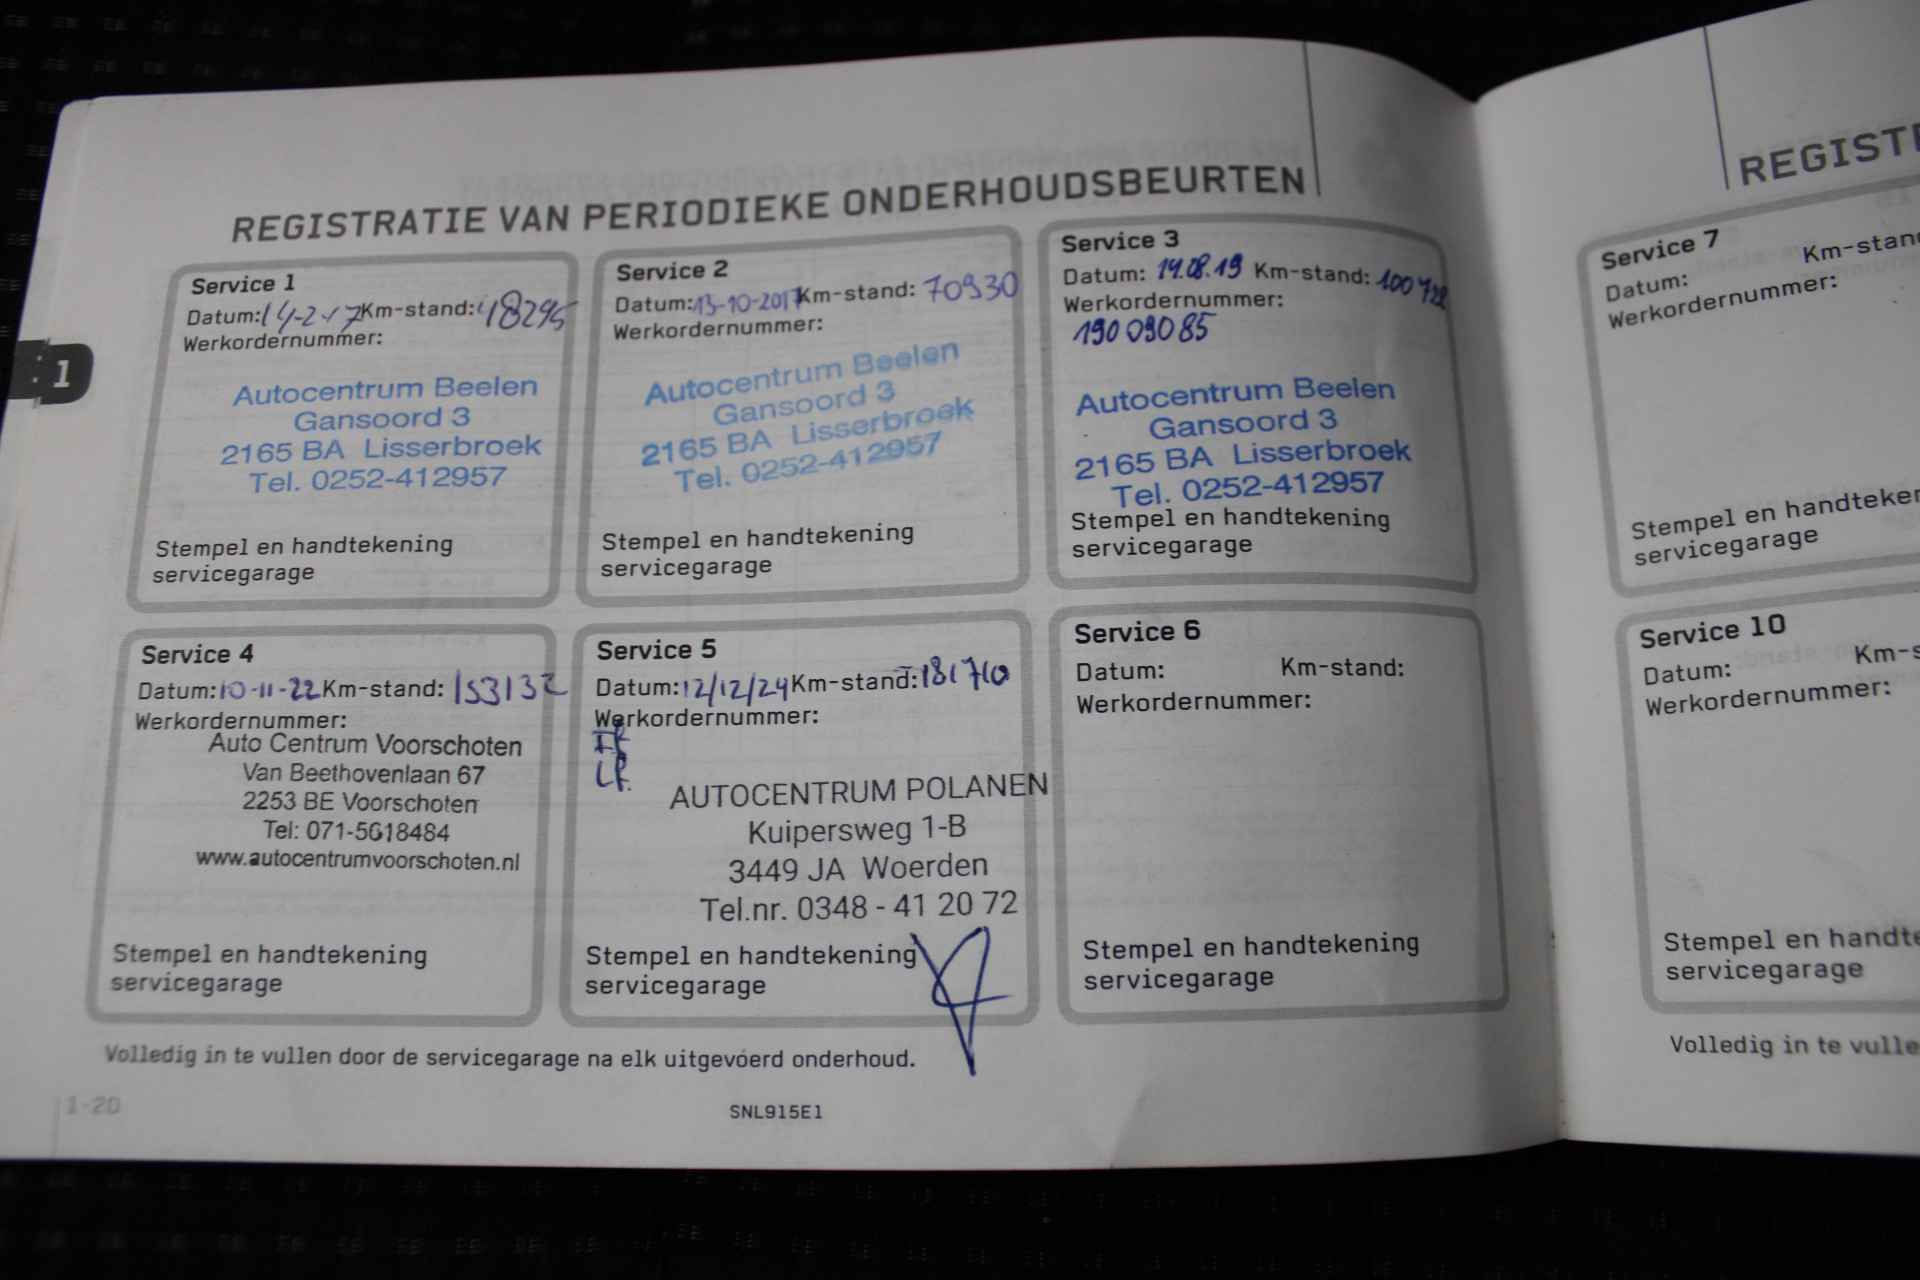 REGISTRATIE VAN PERIODIEKE ONDERHOUDSBEURTEN
Service 1
Datum: 14-2-17 Km-stand: 48295
Werkordernummer:
Autocentrum Beelen
Gansoord 3
2165 BA Lisserbroek
Tel. 0252-412957
Stempel en handtekening
servicegarage
Service 2
Datum: 13-10-2017 Km-stand: 70930
Werkordernummer:
Autocentrum Beelen
Gansoord 3
2165 BA Lisserbroek
Tel. 0252-412957
Stempel en handtekening
servicegarage
Service 3
Datum: 14.08.19 Km-stand:
Werkordernummer:
19009085
Autocentrum Beelen
Gansoord 3
2165 BA Lisserbroek
Tel. 0252-412957
Stempel en handtekening
servicegarage
1
Service 4
Datum: 10-11-22 Km-stand: 153132
Werkordernummer:
Auto Centrum Voorschoten
Van Beethovenlaan 67
2253 BE Voorschoten
Tel: 071-5618484
www.autocentrumvoorschoten.nl
Stempel en handtekening
servicegarage
Service 5
Datum: 12/12/24 Km-stand: 181710
Werkordernummer:
AUTOCENTRUM POLANEN
Kuipersweg 1-B
3449 JA Woerden
Tel.nr. 0348 - 41 20 72
Stempel en handtekening
servicegarage
Service 6
Datum: Km-stand:
Werkordernummer:
Stempel en handtekening
servicegarage
Volledig in te vullen door de servicegarage na elk uitgevoerd onderhoud.
1-20
SNL915E1
REGISTR
Service 7
Datum: Km-stand
Werkordernummer:
Stempel en handteken
servicegarage
Service 10
Datum: Km-s
Werkordernummer:
Stempel en handte
servicegarage
Volledig in te vulle